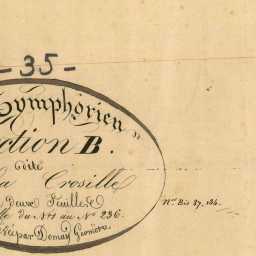 - 35 -
Symphorien"
ction B.
Côté
a Crosille
Deux Feuilles
du N°1 au N° 236.
par Géomètre
N° Bis 87. 184.